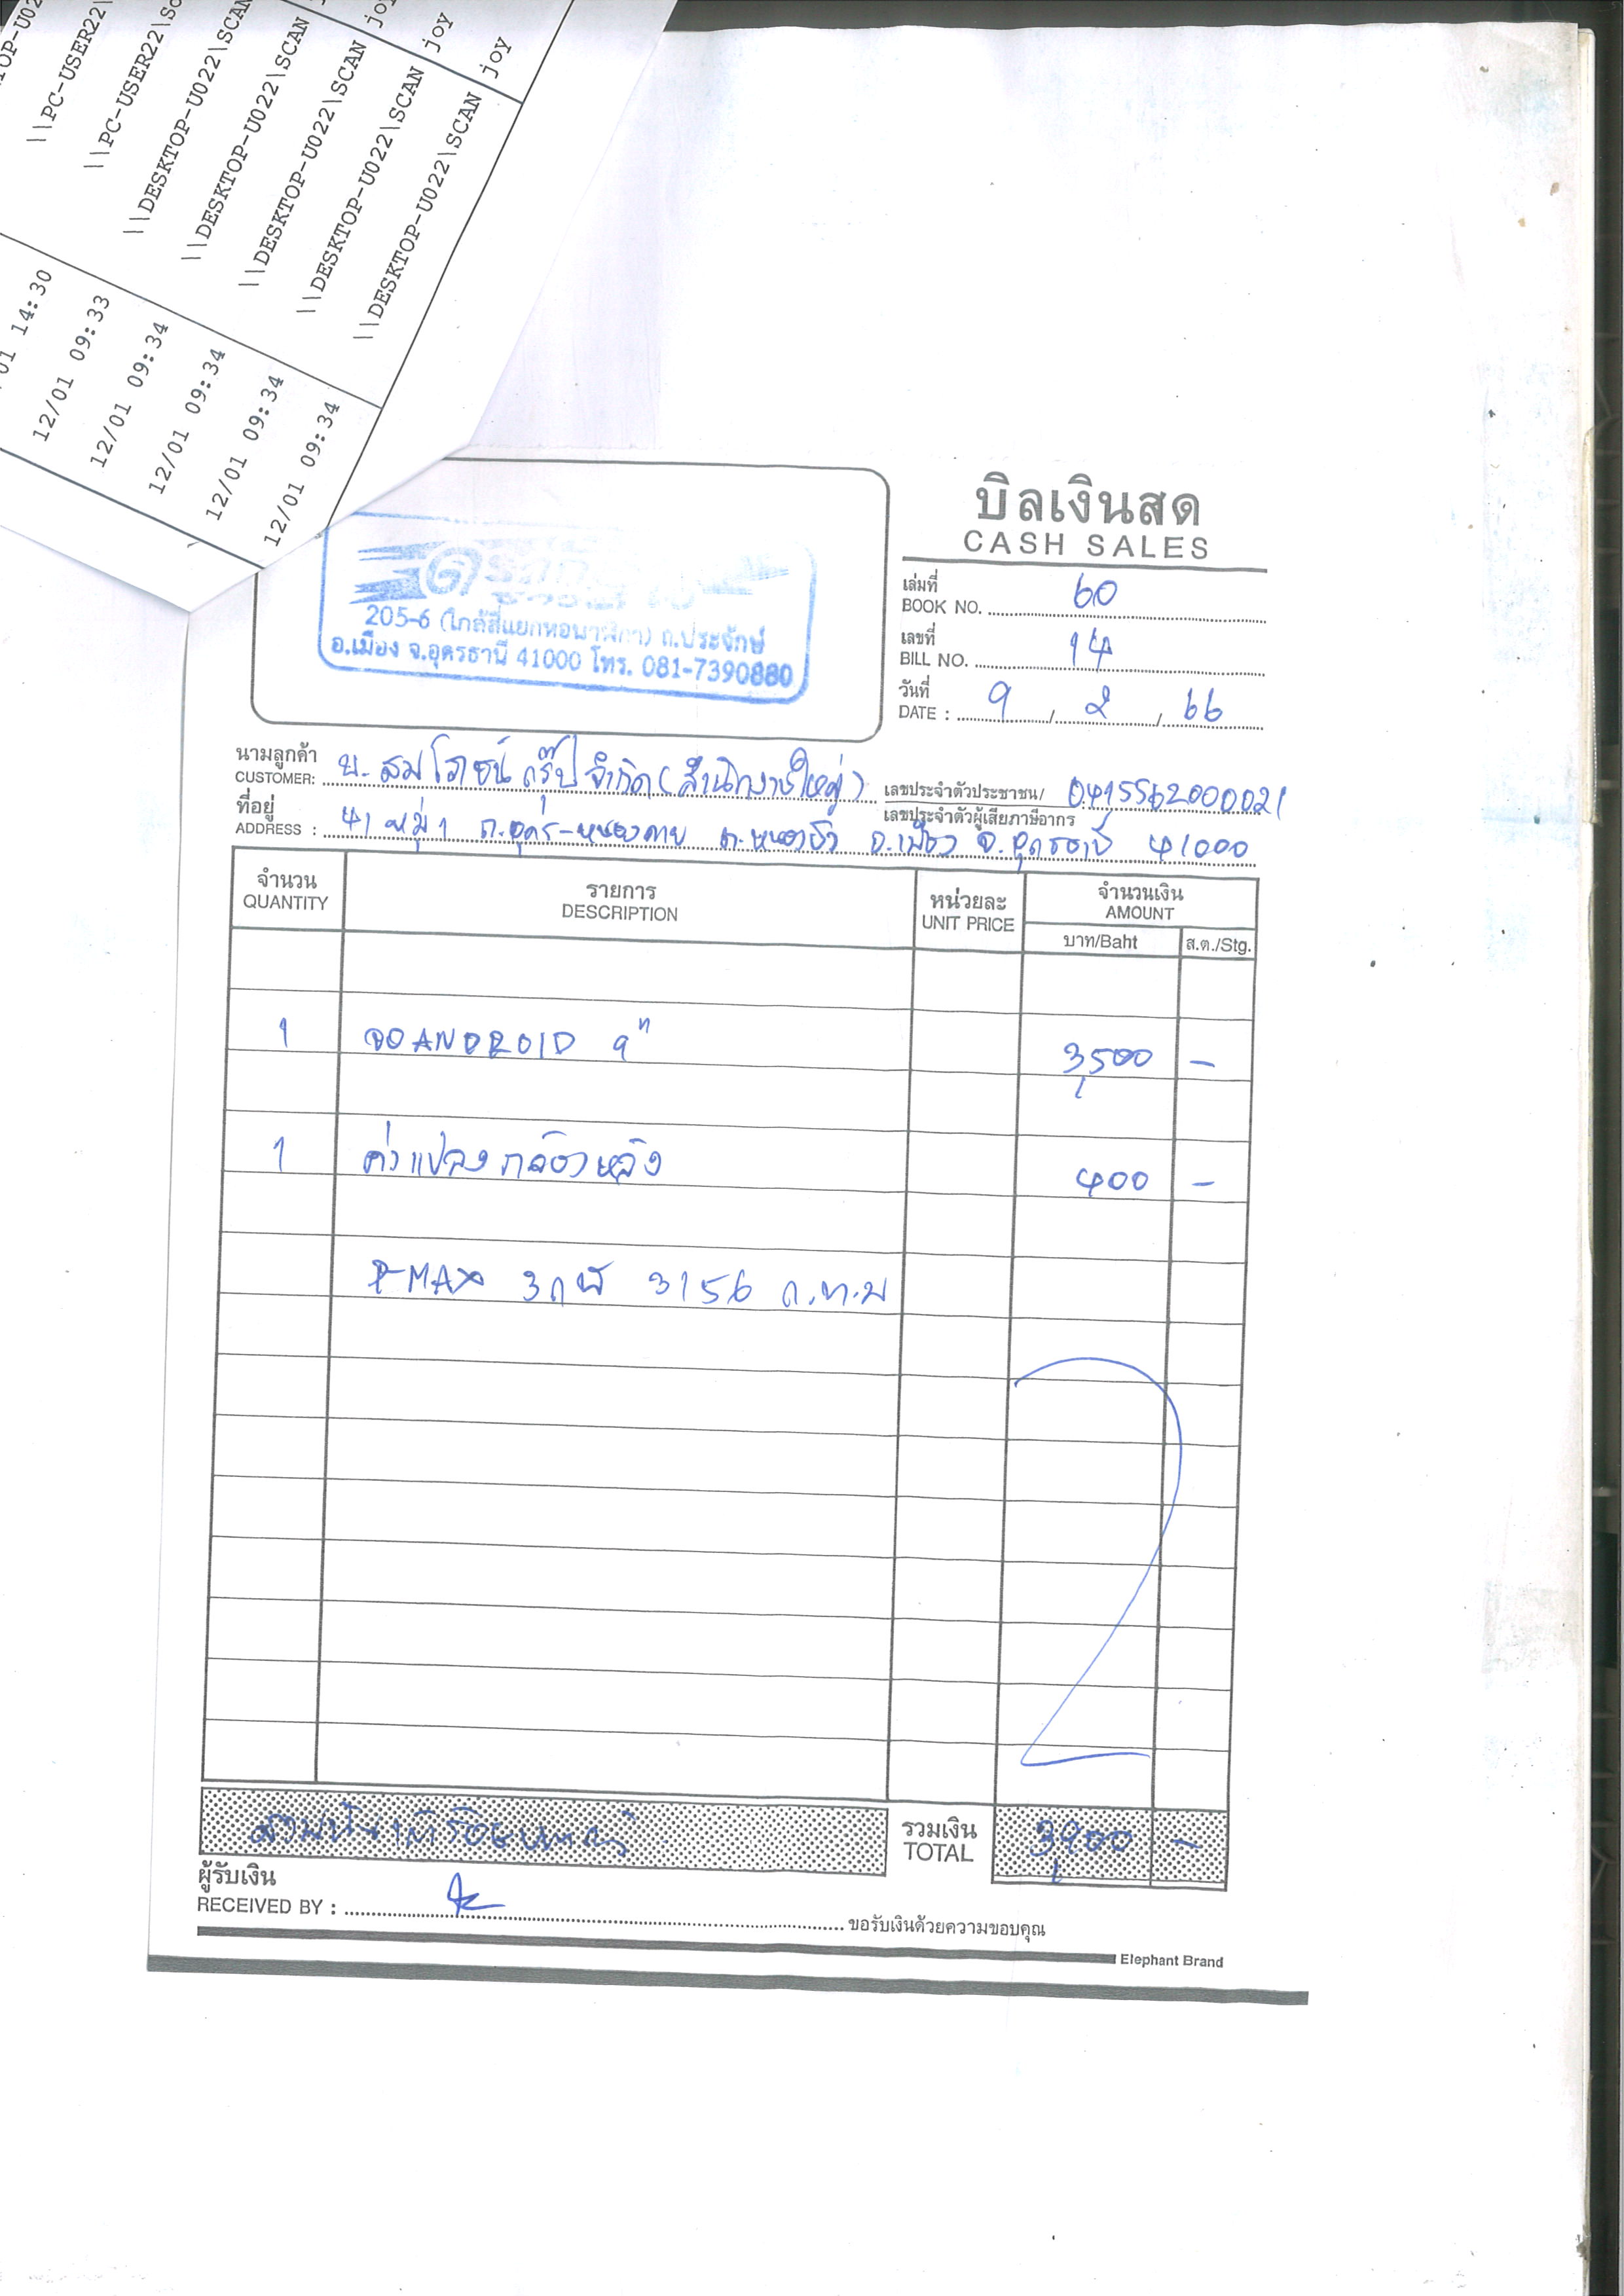 \\PC-USER22\
\\PC-USER22\
\\DESKTOP-U022\SCAN
\\DESKTOP-U022\SCAN
\\DESKTOP-U022\SCAN joy
\\DESKTOP-U022\SCAN joy
\\DESKTOP-U022\SCAN joy
14:30
12/01 09:33
12/01 09:34
12/01 09:34
12/01 09:34
12/01 09:34
205-6 (ใกล้สี่แยกหอนาฬิกา) ถ.ประจักษ์
อ.เมือง จ.อุดรธานี 41000 โทร. 081-7390880
บิลเงินสด
CASH SALES
เล่มที่
BOOK NO. 60
เลขที่
BILL NO. 14
วันที่
DATE : 9 / 2 / 66
นามลูกค้า
CUSTOMER: บ. สมโภชน์ กรุ๊ป จำกัด (สำนักงานใหญ่)
เลขประจำตัวประชาชน/ 0415562000021
เลขประจำตัวผู้เสียภาษีอากร
ที่อยู่
ADDRESS : 41 หมู่ 1 ถ.อุดร-หนองคาย ต.หมากแข้ง อ.เมือง จ.อุดรธานี 41000
จำนวน รายการ หน่วยละ จำนวนเงิน
QUANTITY DESCRIPTION UNIT PRICE AMOUNT
บาท/Baht ส.ต./Stg.
1 จอ ANDROID 9" 3,500 -
1 ค่าแปลงกล้องหลัง 400 -
3156 ก.ท.ม
สามพันเก้าร้อยบาท รวมเงิน 3,900 -
TOTAL
ผู้รับเงิน
RECEIVED BY : ขอรับเงินด้วยความขอบคุณ
Elephant Brand